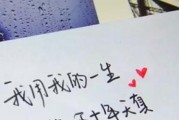 我用我的一生
十年天真